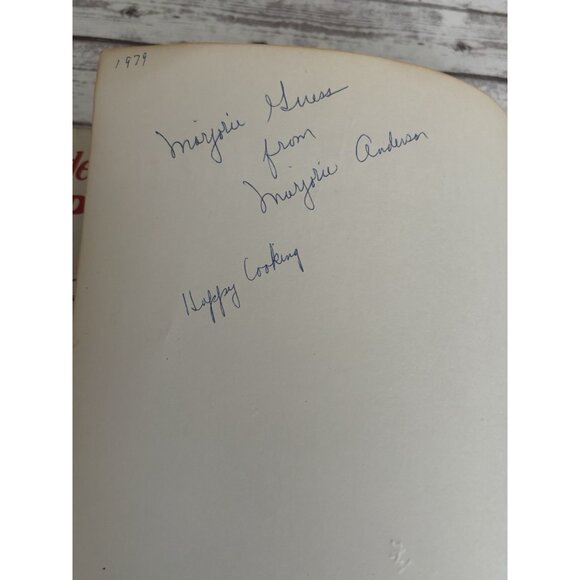 1979
Marjorie Guess
from
Marjorie Anderson
Happy Cooking